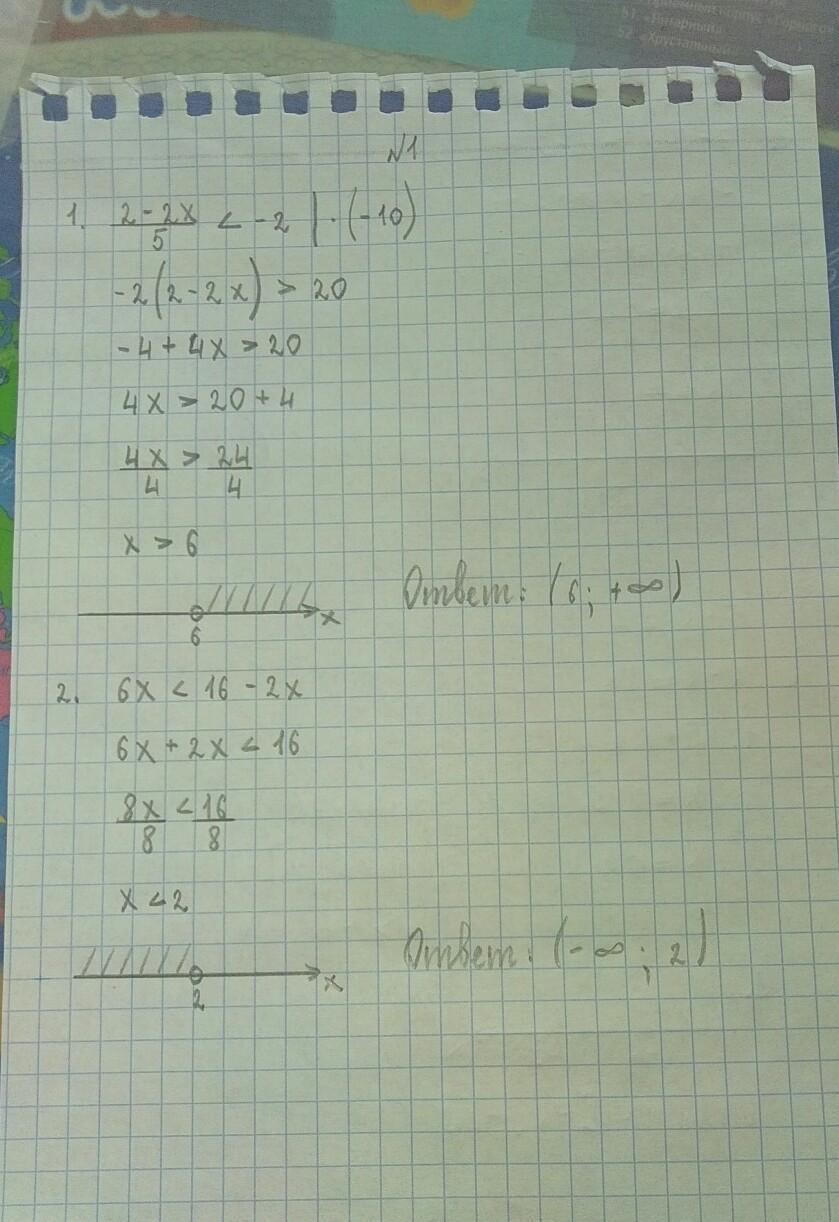 51 «Янтарный»
52 «Хрустальный
N1
1. \frac{2-2x}{5} < -2 | · (-10)
-2(2-2x) > 20
-4 + 4x > 20
4x > 20 + 4
\frac{4x}{4} > \frac{24}{4}
x > 6
Ответ: (6; +∞)
6 x
2. 6x < 16 - 2x
6x + 2x < 16
\frac{8x}{8} < \frac{16}{8}
x < 2
Ответ: (-∞; 2)
2 x